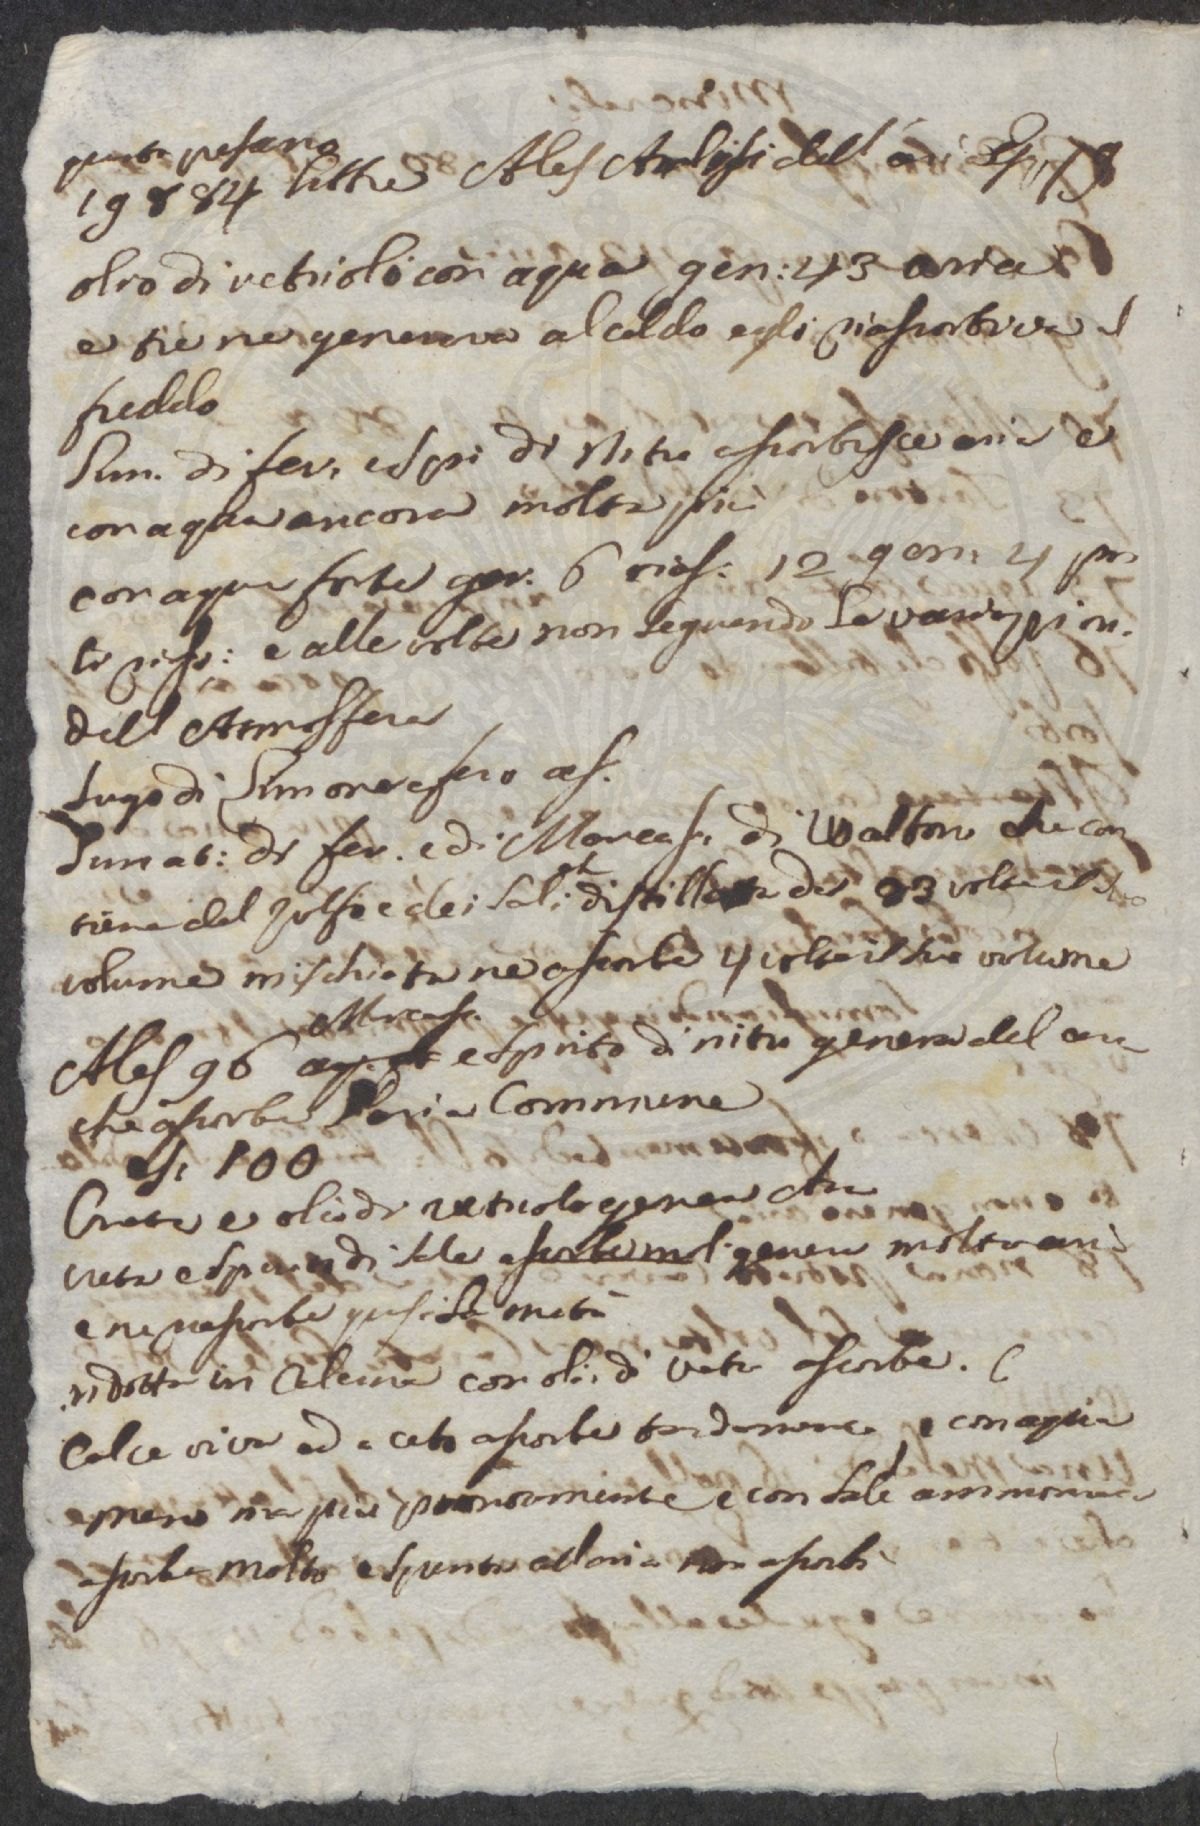 questa pesano
19884 littre Ales Analisi dell' ari Esp. 78
olio di vetriolo con aqua gen: 43 aria
e tie ne generava al caldo egli riassorbiva al
freddo
Lim. di fer. e spi di Nitro assorbisce aria e
con aqua ancora molta più
con aqua forte gen. 6 rias: 12 gen. 4 poi
lo riass: e alle volte non seguendo le variazzion.
dell Atmosfera
Sugo di Limone e fero as.
Limat: di fer. e di Marcas. di Walton che con
tiene del zolfo e dei Sali distillata da 83 volte il suo
volume mischiata ne assorbe 4 volte il suo volume
Marcas.
Ales 96 e Spirito di nitro genera del ari
che assorbe l'aria Commune
es. 100
Creta e olio di vetriolo genera Aria
creta e Spirito di Sale assorbe mol. genera molta ari
e ne riasorbe quasi la metà
ridotta in Calcina con oli. di vetr. assorbe. (
Calce viva ed aceto assorbe tardamente e con aqua
meno ma più prontamente e con Sale ammoniaco
assorbe molto e Spenta all aria non assorbi